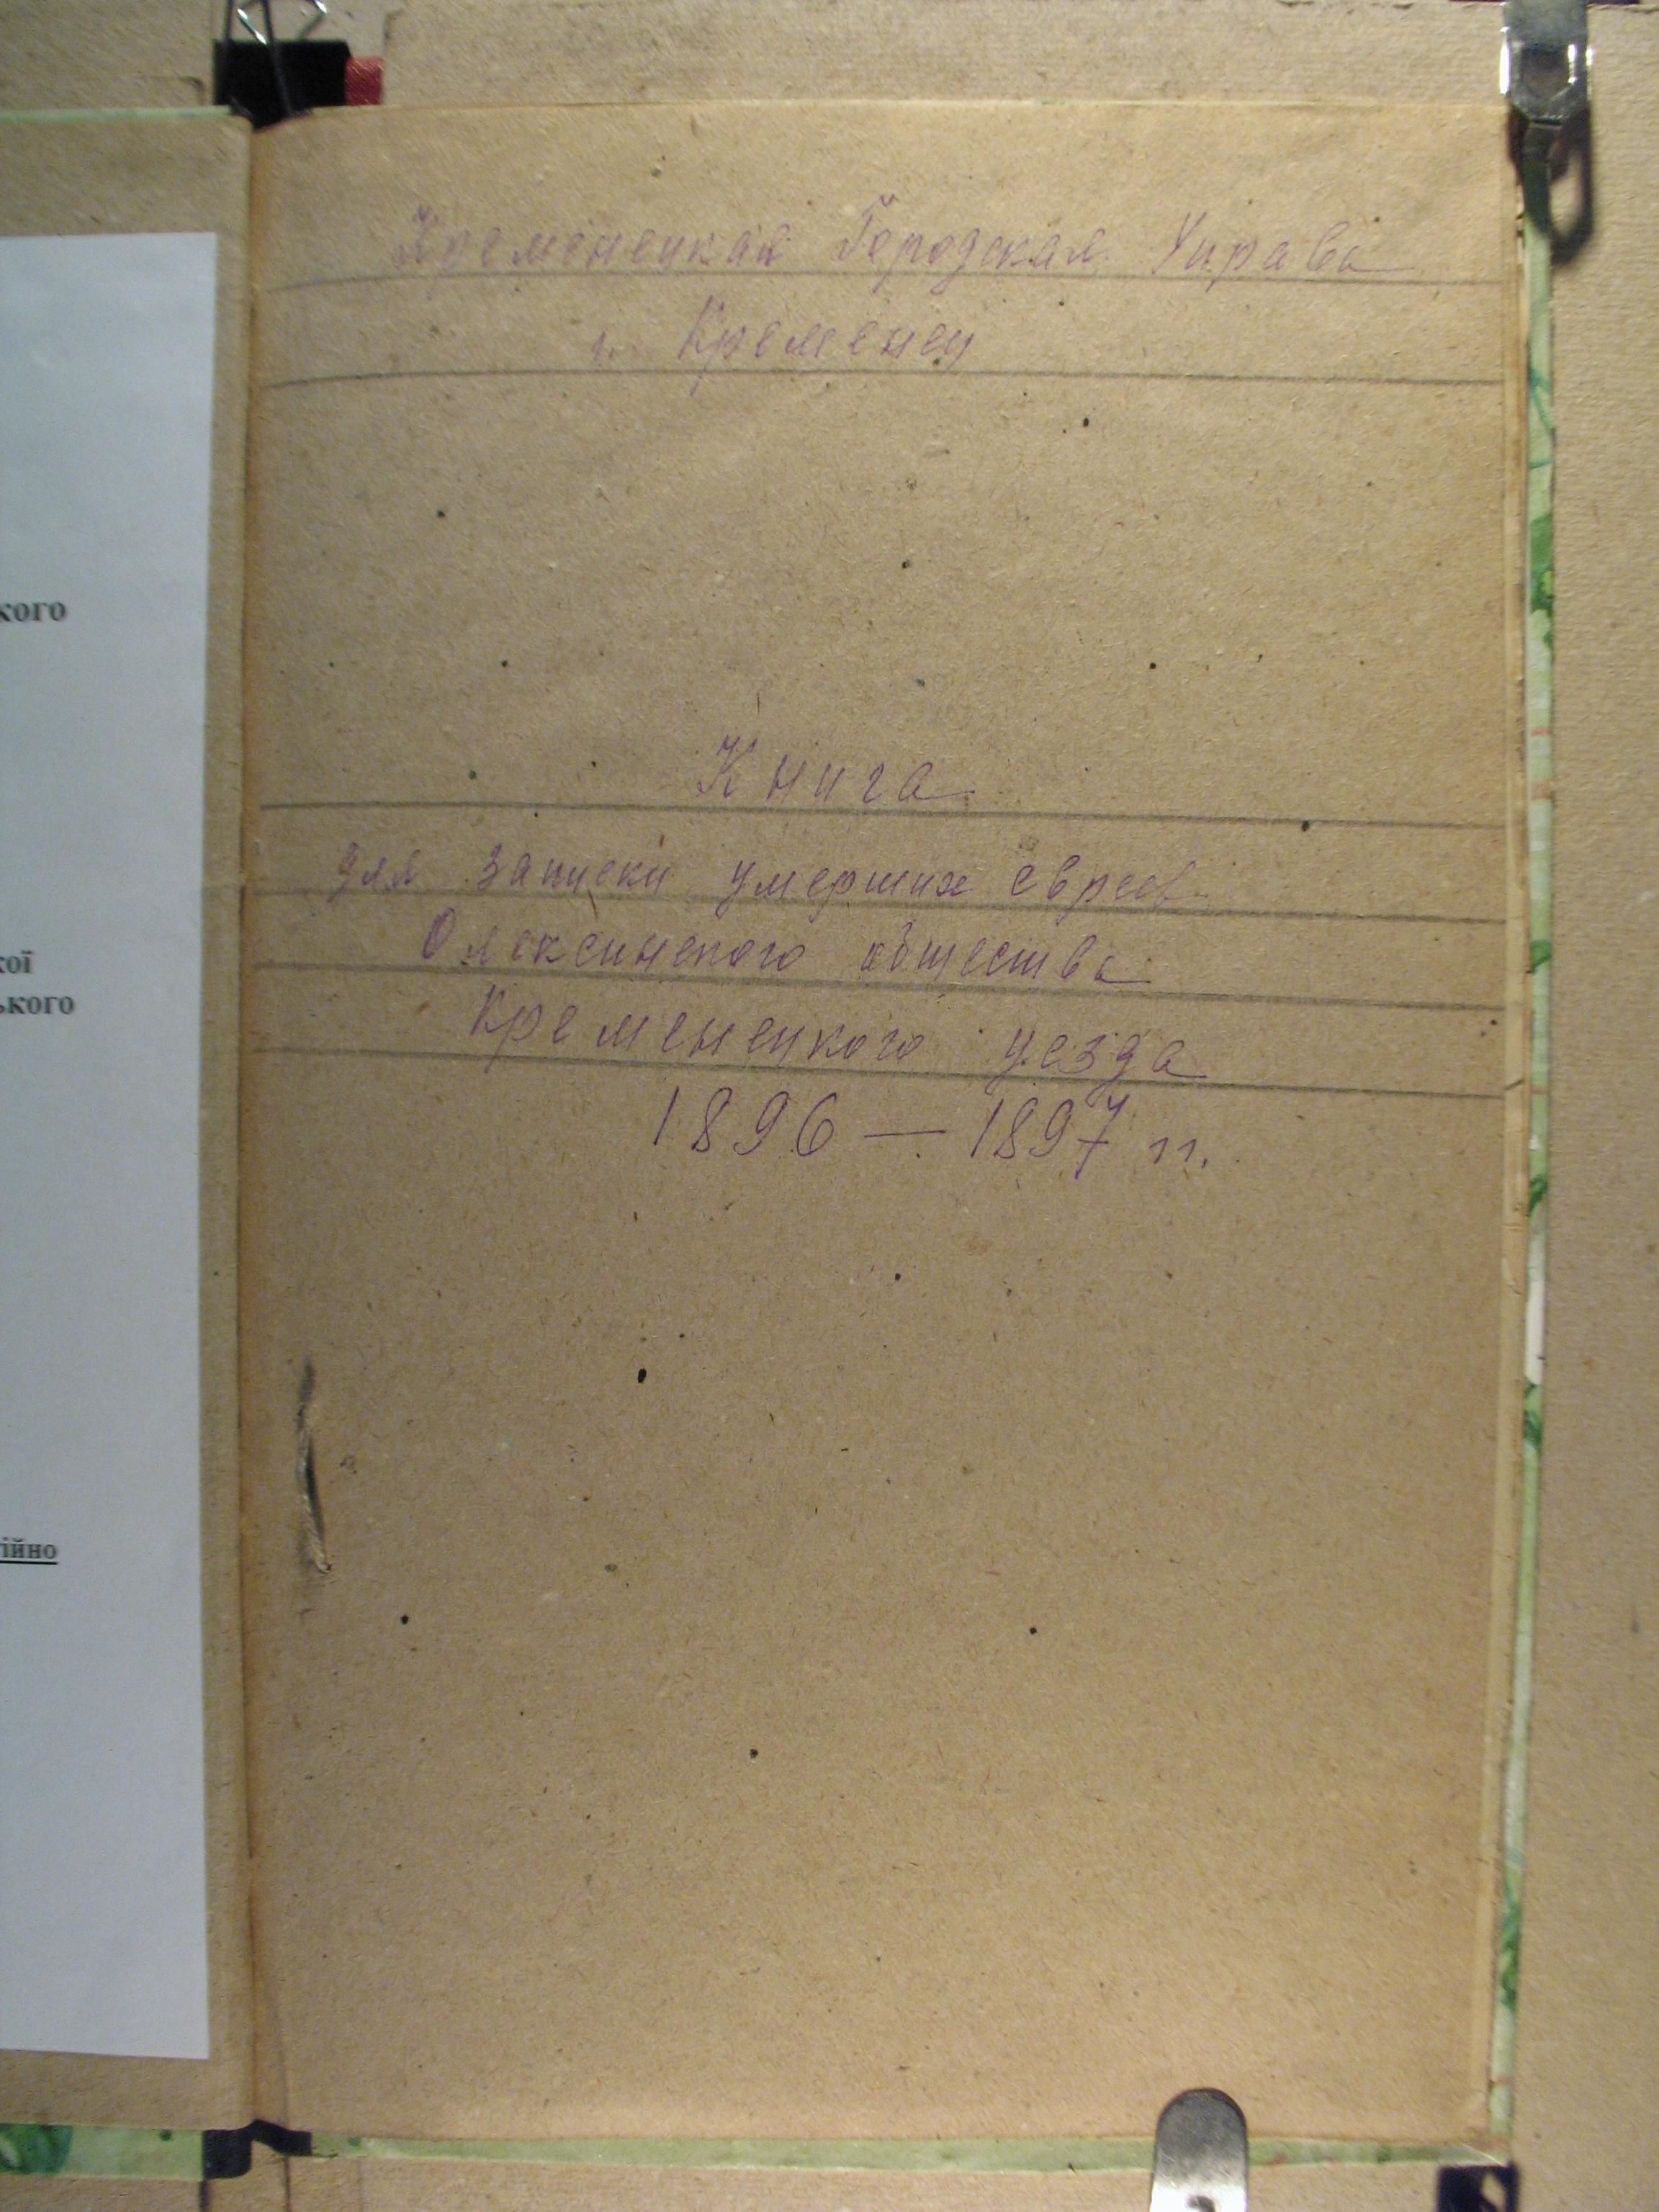 кого
кої
ького
ійно
Кременецкая Городская Управа
г. Кременец
Книга
для записки умерших евреев
Олексинекого общества
Кременецкого уезда
1896 — 1897 гг.